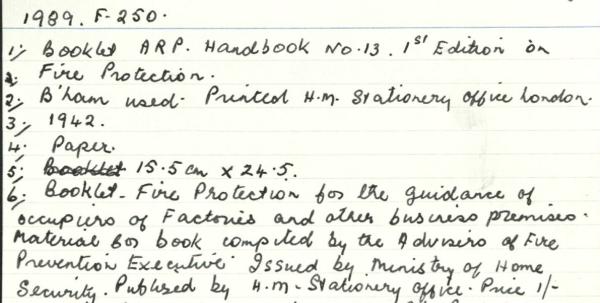 1989. F-250.
1; Booklet ARP. Handbook No.13. 1st Edition on
2; Fire Protection.
2; B'ham used. Printed H.M. Stationery Office London.
3; 1942.
4; Paper.
5; Booklet 15.5cm x 24.5.
6; Booklet - Fire Protection for the guidance of
occupiers of Factories and other business premises.
Material for book compiled by the Advisers of Fire
Prevention Executive. Issued by Ministry of Home
Security. Publised by H.M. Stationery Office. Price 1/-